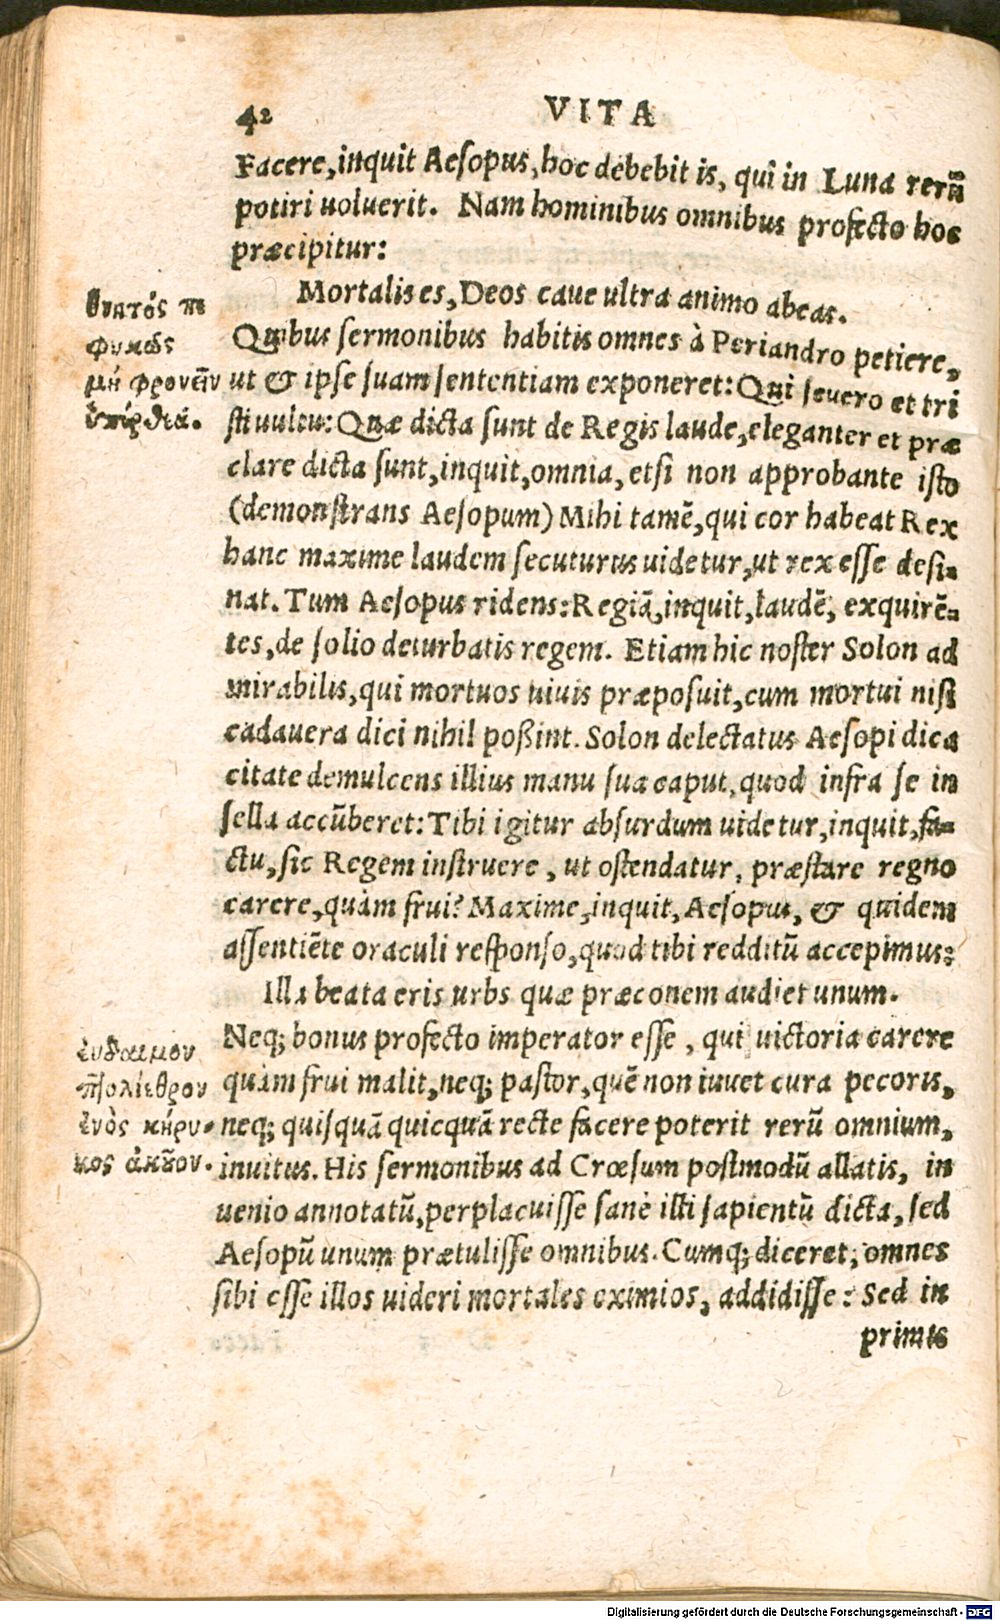 42 VITA
Facere, inquit Aesopus, hoc debebit is, qui in Luna rerũ
potiri uoluerit. Nam hominibus omnibus profecto hoc
præcipitur:
Mortalis es, Deos caue ultra animo abeas.
Quibus sermonibus habitis omnes à Periandro petiere,
ut & ipse suam sententiam exponeret: Qui seuero et tri
sti uultu: Quæ dicta sunt de Regis laude, eleganter et præ
clare dicta sunt, inquit, omnia, etsi non approbante isto
(demonstrans Aesopum) Mihi tamẽ, qui cor habeat Rex
hanc maxime laudem secuturus uidetur, ut rex esse desi-
nat. Tum Aesopus ridens: Regiã, inquit, laudẽ, exquirẽ-
tes, de solio deturbatis regem. Etiam hic noster Solon ad
mirabilis, qui mortuos uiuis præposuit, cum mortui nisi
cadauera dici nihil poßint. Solon delectatus Aesopi dica
citate demulcens illius manu sua caput, quod infra se in
sella accũberet: Tibi igitur absurdum uidetur, inquit, fa-
ctu, sic Regem instruere, ut ostendatur, præstare regno
carere, quàm frui? Maxime, inquit, Aesopus, & quidem
assentiẽte oraculi responso, quod tibi redditũ accepimus:
Illa beata eris urbs quæ præconem audiet unum.
Neq; bonus profecto imperator esse, qui uictoria carere
quàm frui malit, neq; pastor, quẽ non iuuet cura pecoris,
neq; quisquã quicquã recte facere poterit rerũ omnium,
inuitus. His sermonibus ad Crœsum postmodũ allatis, in
uenio annotatũ, perplacuisse sanè illi sapientũ dicta, sed
Aesopũ unum prætulisse omnibus. Cumq; diceret, omnes
sibi esse illos uideri mortales eximios, addidisse: Sed in
primis
θνητός πε
φυκὼς
μὴ φρονεῖν
ὑπὲρ θεά.
εὔδαιμον
πτολίεθρον
ἑνὸς κήρυ-
κος ἀκοῦον.
Digitalisierung gefördert durch die Deutsche Forschungsgemeinschaft - DFG